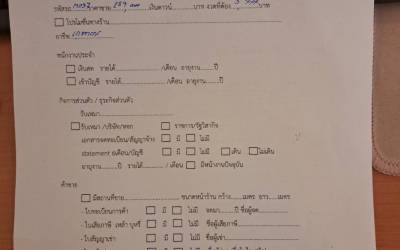 รหัสรถ ราคาขาย 159,000 เงินดาวน์..........บาท งวดที่ต้อง บาท
☐ โปรโมชั่นทางร้าน
อาชีพ เกษตรกร
พนักงานประจำ
☐ เงินสด รายได้............../เดือน อายุงาน......ปี
☐ เข้าบัญชี รายได้............../เดือน อายุงาน......ปี
กิจการส่วนตัว / ธุรกิจส่วนตัว
รับเหมา..........
☐ รับเหมา /บริษัท/หจก ☐ ราชการ/รัฐวิสากิจ
เอกสารจดทะเบียน/สัญญาจ้าง ☐ มี ☐ ไม่มี
statement 6เดือน/บัญชี ☐ มี ☐ ไม่มี ☐ เดิน ☐ ไม่เดิน
อายุงาน.......ปี รายได้............/ เดือน ☐ มีหน้างานปัจจุบัน
ค้าขาย
☐ มีสถานที่ขาย.............. ขนาดหน้าร้าน กว้าง......เมตร ยาว......เมตร
- ใบทะเบียนการค้า ☐ มี ☐ ไม่มี ปี ชื่อผู้จด..........
- ใบเสียภาษี เหล้า บุหรี่ ☐ มี ☐ ไม่มี ชื่อผู้เสียภาษี..........
- ใบสัญญาเช่า ☐ มี ☐ ไม่มี